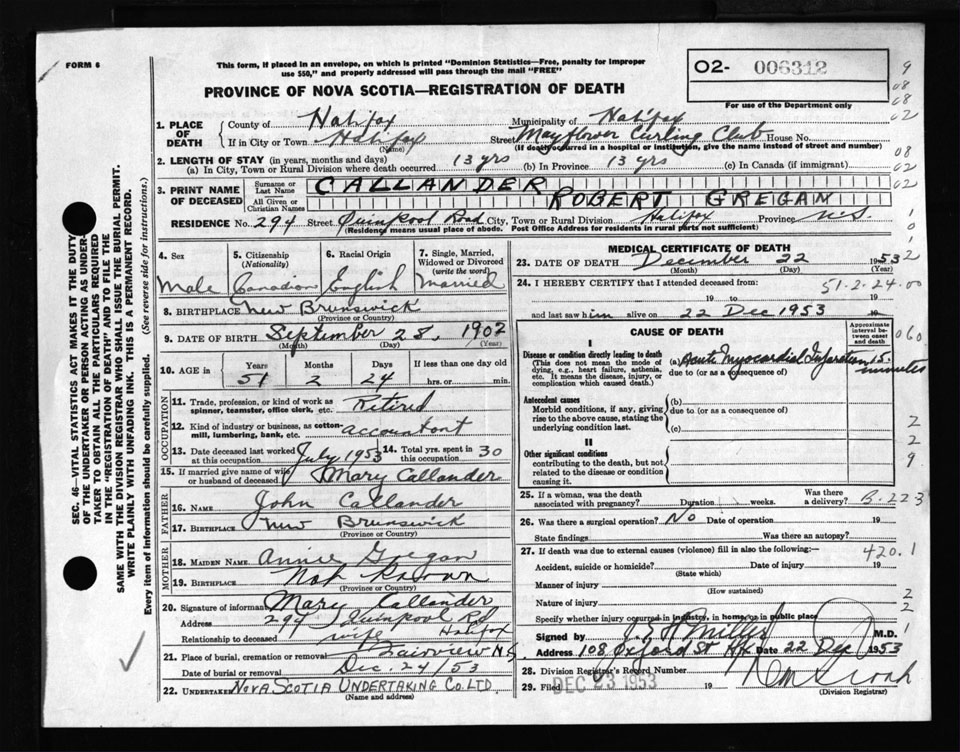 FORM 6
This form, if placed in an envelope, on which is printed "Dominion Statistics—Free, penalty for improper
use $50," and properly addressed will pass through the mail "FREE"
PROVINCE OF NOVA SCOTIA—REGISTRATION OF DEATH
02- 006312
For use of the Department only
1. PLACE OF DEATH County of Halifax Municipality of Halifax
If in City or Town Halifax Street Mayflower Curling Club House No.
(Name) (If death occurred in a hospital or institution, give the name instead of street and number)
2. LENGTH OF STAY (in years, months and days)
(a) In City, Town or Rural Division where death occurred 13 yrs (b) In Province 13 yrs (c) In Canada (if immigrant)
3. PRINT NAME OF DECEASED Surname or Last Name CALLANDER
All Given or Christian Names ROBERT GREIGAN
RESIDENCE No. 294 Street Quinpool Road City, Town or Rural Division Halifax Province N.S
(Residency means usual place of abode. Post Office Address for residents in rural parts not sufficient)
4. Sex Male
5. Citizenship (Nationality) Canadian
6. Racial Origin English
7. Single, Married, Widowed or Divorced (write the word) Married
8. BIRTHPLACE New Brunswick
(Province or Country)
9. DATE OF BIRTH September 28, 1902
(Month) (Day) (Year)
10. AGE in Years Months Days If less than one day old
51 2 24 hrs. or min.
OCCUPATION
11. Trade, profession, or kind of work as spinner, teamster, office clerk, etc. Retired
12. Kind of industry or business, as cotton mill, lumbering, bank, etc. accountant
13. Date deceased last worked at this occupation July 1953 14. Total yrs. spent in this occupation 30
15. If married give name of wife or husband of deceased. Mary Callander
FATHER
16. NAME John Callander
17. BIRTHPLACE New Brunswick
(Province or Country)
MOTHER
18. MAIDEN NAME Annie Gregan
19. BIRTHPLACE Not Known
(Province or Country)
20. Signature of informant Mary Callander
Address 294 Quinpool Rd Halifax
Relationship to deceased wife
21. Place of burial, cremation or removal Fairview N.S
Date of burial or removal Dec. 24/53
22. UNDERTAKER NOVA SCOTIA UNDERTAKING CO. LTD
MEDICAL CERTIFICATE OF DEATH
23. DATE OF DEATH December 22 1953
(Month) (Day) (Year)
24. I HEREBY CERTIFY that I attended deceased from: 51-2-24-00
19 to 19
and last saw him alive on 22 Dec 1953 19
CAUSE OF DEATH
Approximate interval between onset and death
I
Disease or condition directly leading to death
(This does not mean the mode of dying, e.g., heart failure, asthenia, etc. It means the disease, injury, or complication which caused death.)
(a) Acute Myocardial Infarction 15 minutes
due to (or as a consequence of)
Antecedent causes
Morbid conditions, if any, giving rise to the above cause, stating the underlying condition last.
(b)
due to (or as a consequence of)
(c)
II
Other significant conditions
contributing to the death, but not related to the disease or condition causing it.
25. If a woman, was the death associated with pregnancy? Duration weeks. Was there a delivery? B-223
26. Was there a surgical operation? No Date of operation 19
State findings Was there an autopsy?
27. If death was due to external causes (violence) fill in also the following:— 420.1
Accident, suicide or homicide? Date of injury 19
(State which)
Manner of injury
(How sustained)
Nature of injury
Specify whether injury occurred in industry, in home, or in public place
Signed by Miller M.D.
Address 108 Oxford St Hfx Date 22 Dec 1953
28. Division Registrar's Record Number
29. Filed DEC 23 1953 19
(Division Registrar)
SEC. 46—VITAL STATISTICS ACT MAKES IT THE DUTY
OF THE UNDERTAKER OR PERSON ACTING AS UNDER-
TAKER TO OBTAIN ALL THE PARTICULARS REQUIRED
IN THE "REGISTRATION OF DEATH" AND TO FILE THE
SAME WITH THE DIVISION REGISTRAR WHO SHALL ISSUE THE BURIAL PERMIT.
WRITE PLAINLY WITH UNFADING INK. THIS IS A PERMANENT RECORD.
Every item of information should be carefully supplied. (See reverse side for instructions.)
9
08
08
02
08
02
02
1
0
2
060
2
2
9
1
2
2
1